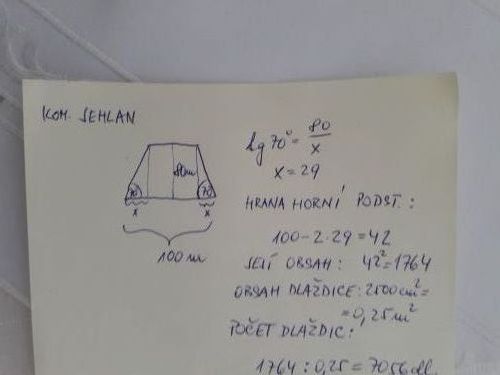 KOM. JEHLAN
tg 70° = 80/x
x = 29
80m
70° 70°
x x
100 m
HRANA HORNÍ PODST.:
100 - 2·29 = 42
JEJÍ OBSAH: 42² = 1764
OBSAH DLAŽDICE: 2500 cm² =
= 0,25 m²
POČET DLAŽDIC:
1764 : 0,25 = 7056 dl.